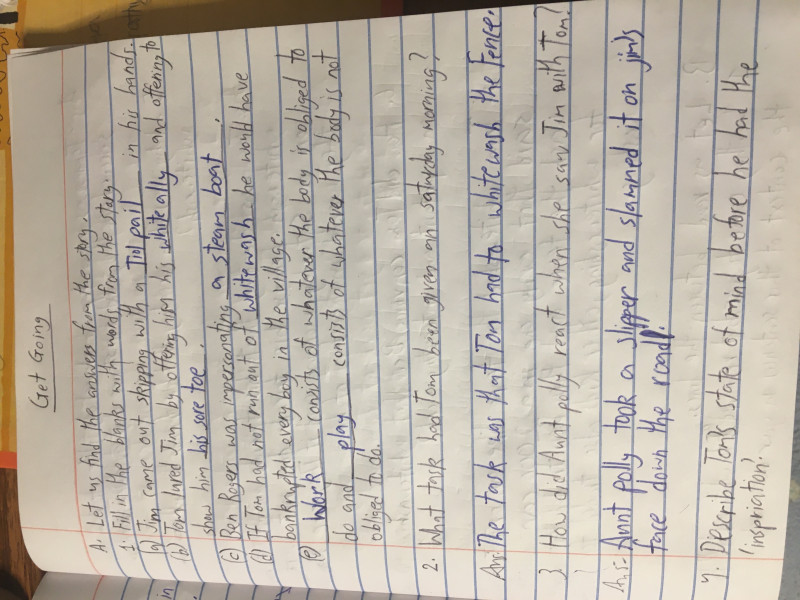 Get Going
A. Let us find the answers from the story.
1. Fill in the blanks with words from the story.
(a) Jim came out skipping with a Tin pail in his hands.
(b) Tom lured Jim by offering him his white ally and offering to
show him his sore toe.
(c) Ben Rogers was impersonating a steam boat.
(d) If Tom had not run out of whitewash he would have
bankrupted every boy in the village.
(e) Work consists of whatever the body is obliged to
do and play consists of whatever the body is not
obliged to do.
2. What task had Tom been given on saturday morning?
Ans: The task was that Tom had to whitewash the fence.
3 How did Aunt polly react when she saw Jim with Tom?
Ans:- Aunt polly took a slipper and slammed it on jim's
face down the road.
4. Describe Tom's state of mind before he had the
'inspriation'.